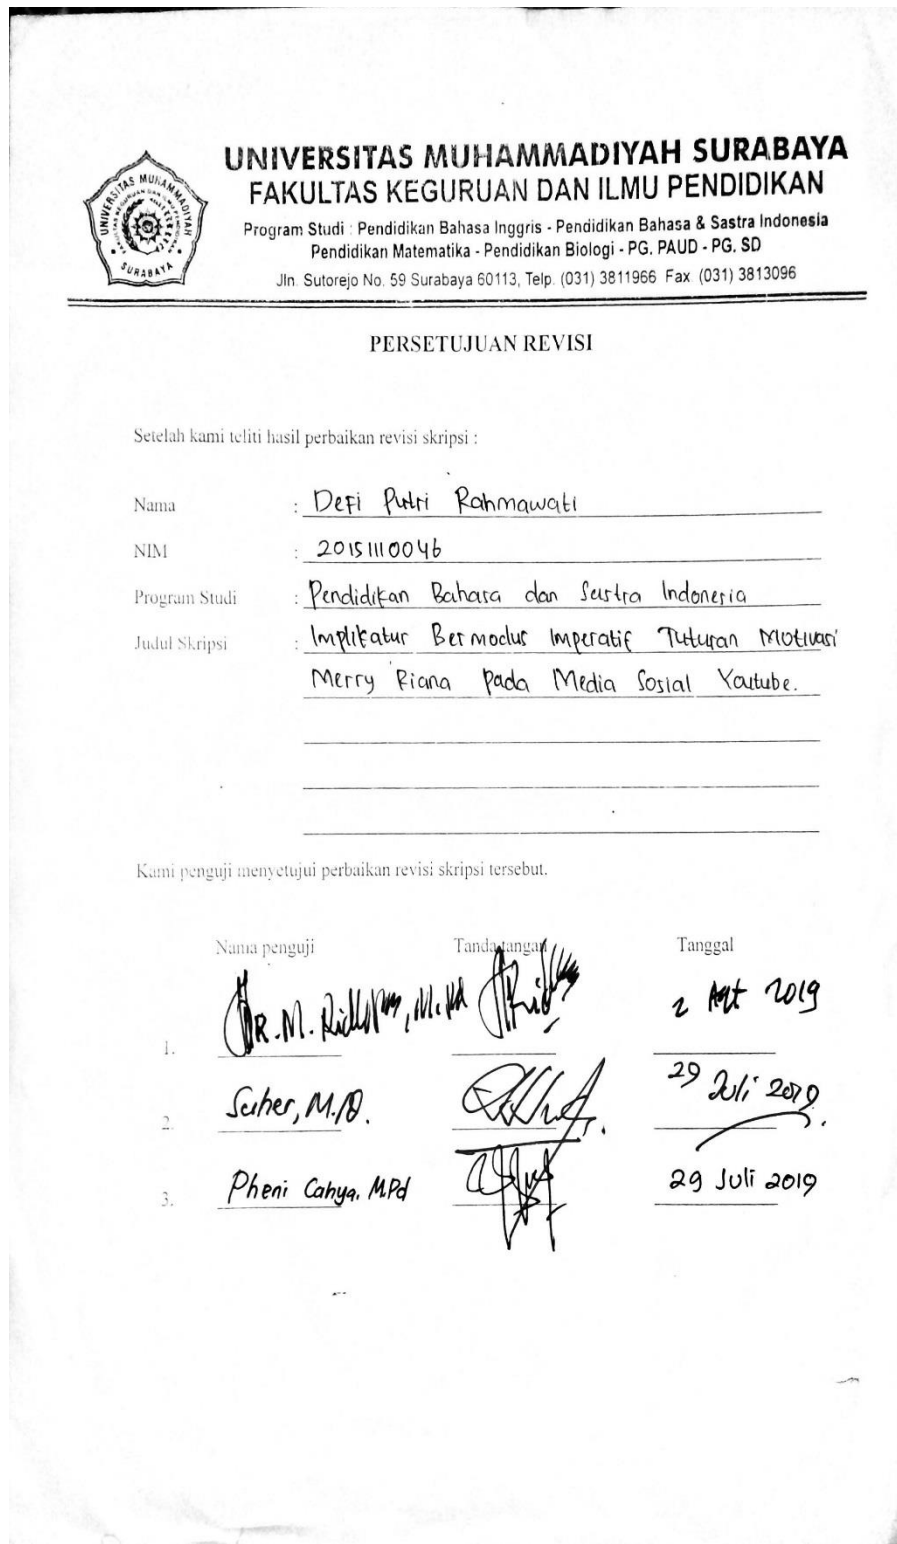 UNIVERSITAS MUHAMMADIYAH SURABAYA
FAKULTAS KEGURUAN DAN ILMU PENDIDIKAN
Program Studi : Pendidikan Bahasa Inggris - Pendidikan Bahasa & Sastra Indonesia
Pendidikan Matematika - Pendidikan Biologi - PG. PAUD - PG. SD
Jln. Sutorejo No. 59 Surabaya 60113, Telp. (031) 3811966 Fax. (031) 3813096
UNIVERSITAS MUHAMMADIYAH
SURABAYA
PERSETUJUAN REVISI
Setelah kami teliti hasil perbaikan revisi skripsi :
Nama : Defi Putri Rahmawati
NIM : 20151110046
Program Studi : Pendidikan Bahasa dan Sastra Indonesia
Judul Skripsi : Implikatur Bermodus Imperatif Tuturan Motivasi
Merry Riana pada Media Sosial Youtube.
Kami penguji menyetujui perbaikan revisi skripsi tersebut.
Nama penguji Tanda tangan Tanggal
1. DR. M. Ridlwan, M.Pd 2 Agt 2019
2. Suher, M. 29 Juli 2019.
3. Pheni Cahya, M.Pd 29 Juli 2019